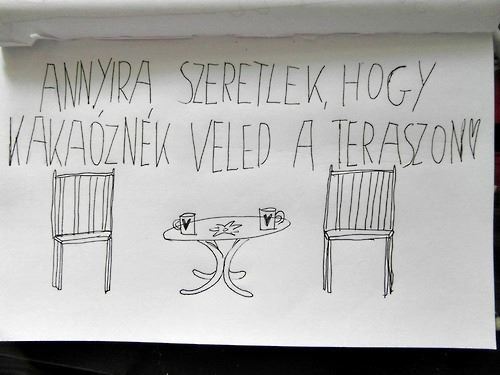 ANNYIRA SZERETLEK, HOGY
KAKAÓZNÉK VELED A TERASZON♥